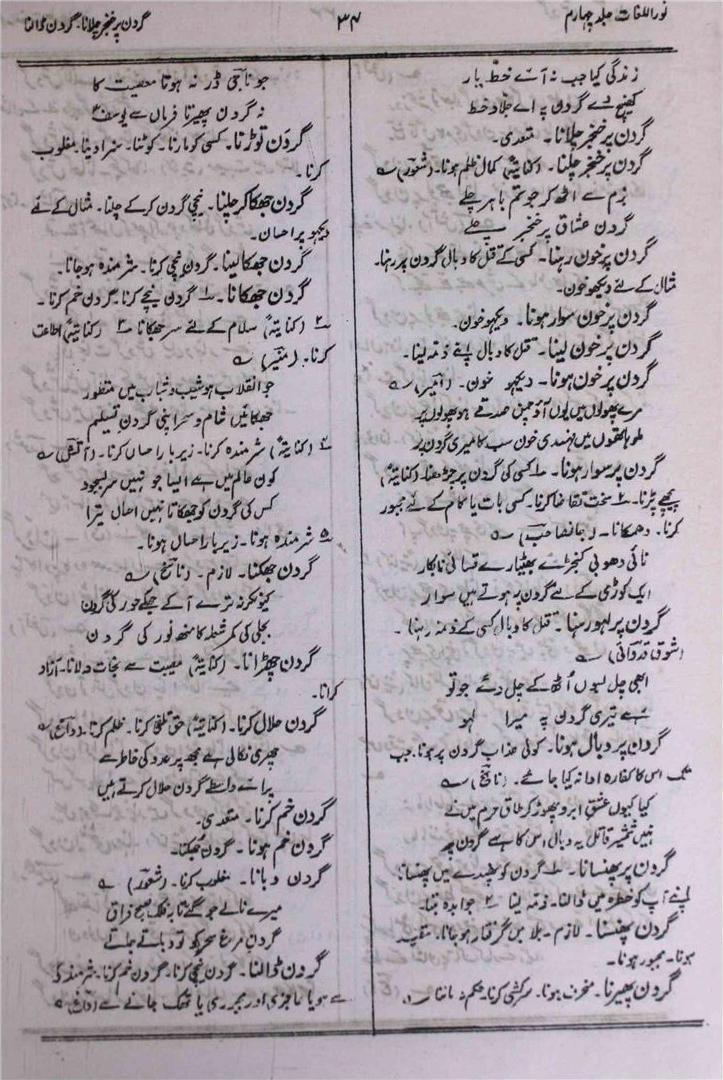 نوراللغات جلد چہارم
۳۷
گردن پر خنجر چلانا۔ گردن ڈالنا
زندگی کیا جب نہ آئے خط یار
کھینچ دے گردن پہ اے جلاد خط
گردن پر خنجر چلانا۔ متعدی۔
گردن پر خنجر چلنا۔ (کنایتہً) کمال ظلم ہونا۔ (شعور) ؎
بزم سے اٹھ کر جو تم باہر چلے
گردن عشاق پر خنجر چلے
گردن پر خون رہنا۔ کسی کے قتل کا وبال گردن پر رہنا۔
مثال کے لئے دیکھو خون۔
گردن پر خون سوار ہونا۔ دیکھو خون۔
گردن پر خون لینا۔ قتل کا وبال اپنے ذمہ لینا۔
گردن پر خون ہونا۔ دیکھو خون۔ (امیر) ؎
مرے پھولوں میں یوں آؤ چمن صدقے ہو پھولوں پر
ہاتھوں میں مہندی خون سب کا میری گردن پر
گردن پر سوار ہونا۔ ۱ کسی کی گردن پر چڑھنا۔ (کنایتہً)
پیچھے پڑنا۔ ۲ سخت تقاضا کرنا۔ کسی بات یا کام کے لئے مجبور
کرنا۔ دھمکانا۔ (جانصاحب) ؎
نائی دھوبی کنجڑے بھٹیارے قسائی نابکار
ایک کوڑی کے لئے گردن پر ہوتے ہیں سوار
گردن پر لہو رہنا۔ قتل کا وبال کسی کے ذمہ رہنا۔
(شوق قدوائی) ؎
ابھی چل بسوں اُٹھ کے چل دے جو تو
رہے تیری گردن پہ میرا لہو
گردن پر وبال ہونا۔ کوئی عذاب گردن پر ہونا۔ جب
تک اس کا کفارہ ادا نہ کیا جائے۔ (ناسخ) ؎
کیا کیوں عشق ابرو چھوڑ کر طاق حرم میں نے
نہیں شمشیر قاتل یہ وبال اس کا ہے گردن پر
گردن پر پھنسانا۔ ۱ گردن کو پھندے میں پھنسانا۔
اپنے آپ کو خطرہ میں ڈالنا۔ ذمہ لینا ۲ جوابدہ بننا۔
گردن پھنسنا۔ لازم۔ بلا میں گرفتار ہو جانا۔ مقید
ہونا۔ مجبور ہونا۔
گردن پھیرنا۔ منحرف ہونا۔ سرکشی کرنا۔ حکم نہ ماننا ؎
جو ناجی ڈر نہ ہوتا معصیت کا
نہ گردن پھیرتا فرماں سے یوسف
گردن توڑنا۔ کسی کو مارنا۔ کوٹنا۔ سزا دینا۔ مغلوب
کرنا۔
گردن جھکا کر چلنا۔ نیچی گردن کر کے چلنا۔ مثال کے لئے
دیکھو پر احسان۔
گردن جھکا لینا۔ گردن نیچی کرنا۔ شرمندہ ہو جانا۔
گردن جھکانا۔ ۱ گردن نیچے کرنا۔ گردن خم کرنا۔
۲ (کنایتہً) سلام کے لئے سر جھکانا ۳ (کنایتہً) اطاعت
کرنا۔ (منیر) ؎
جو انقلاب ہو شیب و شباب میں منظور
جھکائیں شام و سحر اپنی گردن تسلیم
۴ (کنایتہً) شرمندہ کرنا۔ زیر بار احساں کرنا۔ (آتش) ؎
کون عالم میں ہے ایسا جو نہیں سر بسجود
کس کی گردن کو جھکاتا نہیں احساں تیرا
۵ شرمندہ ہونا۔ زیر بار احساں ہونا۔
گردن جھکنا۔ لازم۔ (ناسخ) ؎
کیونکر نہ ترے آگے جھکے حور کی گردن
بجلی کی کمر شعلہ کا منھ نور کی گردن
گردن چھڑانا۔ (کنایتہً) مصیبت سے نجات دلانا۔ آزاد
کرانا۔
گردن حلال کرنا۔ (کنایتہً) حق تلفی کرنا۔ ظلم کرنا۔ (داغ) ؎
چھری نکالی ہے مجھ پر عدو کی خاطر سے
پرائے واسطے گردن حلال کرتے ہیں
گردن خم کرنا۔ متعدی۔
گردن خم ہونا۔ گردن جھکنا۔
گردن دبانا۔ مغلوب کرنا۔ (شعور) ؎
میرے نالے جو گئے تا بفلک صبح فراق
گردن مرغ سحر کو تو دباتے جاتے
گردن ڈالنا۔ گردن نیچی کرنا۔ گردن خم کرنا۔ شرمندگی
سے ہو یا عاجزی اور مجبوری یا تھک جانے سے (داغ) ؎